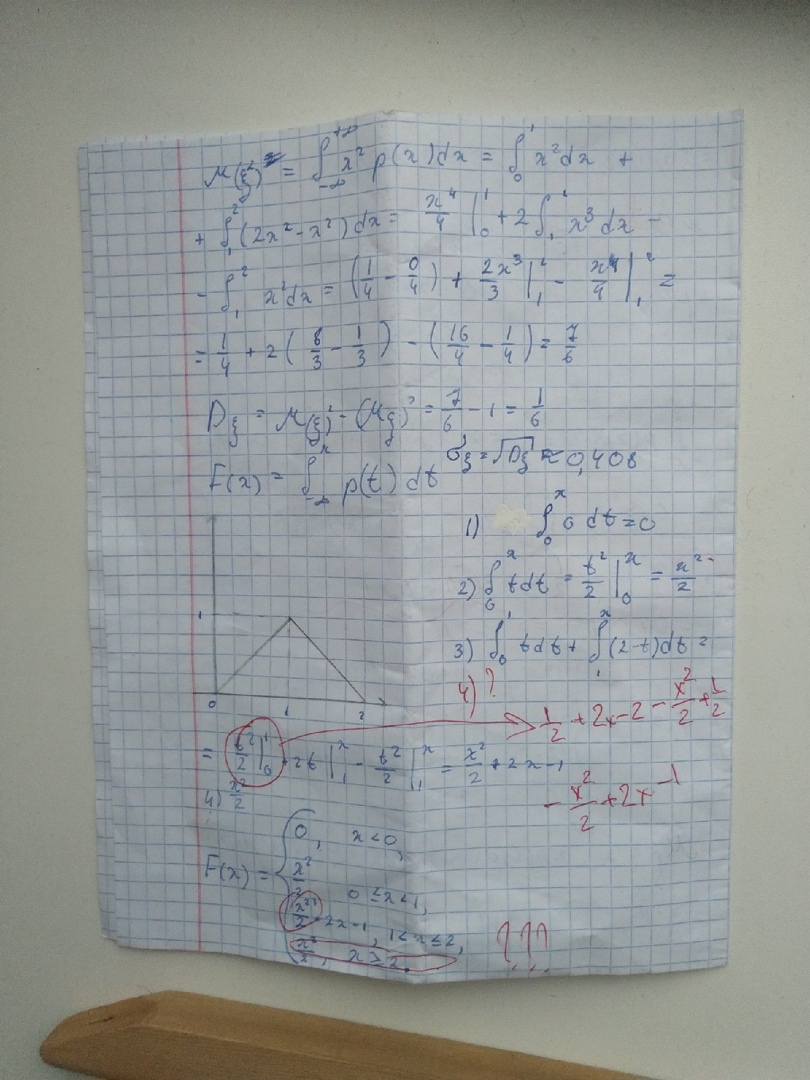 M(ξ²) = ∫_{-∞}^{+∞} x² p(x) dx = ∫_0^1 x² dx +
+ ∫_1^2 (2x² - x²) dx = x⁴/4 |_0^1 + 2∫_1^2 x³ dx -
- ∫_1^2 x² dx = (1/4 - 0/4) + 2x³/3 |_1^2 - x⁴/4 |_1^2 =
= 1/4 + 2(8/3 - 1/3) - (16/4 - 1/4) = 7/6
Dξ = M(ξ)² - (Mξ)² = 7/6 - 1 = 1/6
σξ = √Dξ ≈ 0,408
F(x) = ∫_{-∞}^x p(t) dt
1) ∫_0^x 0 dt = 0
2) ∫_0^x t dt = t²/2 |_0^x = x²/2
3) ∫_0^1 t dt + ∫_1^x (2-t) dt =
1
0 1 2
4) ?
1/2 + 2x - 2 - x²/2 + 1/2
= t²/2 |_0^1 + 2t |_1^x - t²/2 |_1^x = x²/2 + 2x - 1
- x²/2 + 2x - 1
4) x²/2
F(x) = { 0, x < 0,
x²/2, 0 ≤ x < 1,
x²/2 + 2x - 1, 1 < x ≤ 2,
x²/2, x ≥ 2.
???